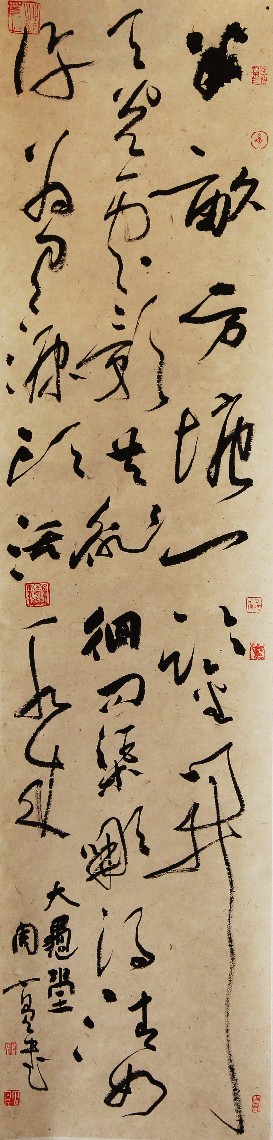 半畝方塘一鑑開
天光雲影共徘徊問渠那得清如
許為有源頭活水來
大龜堂
周書